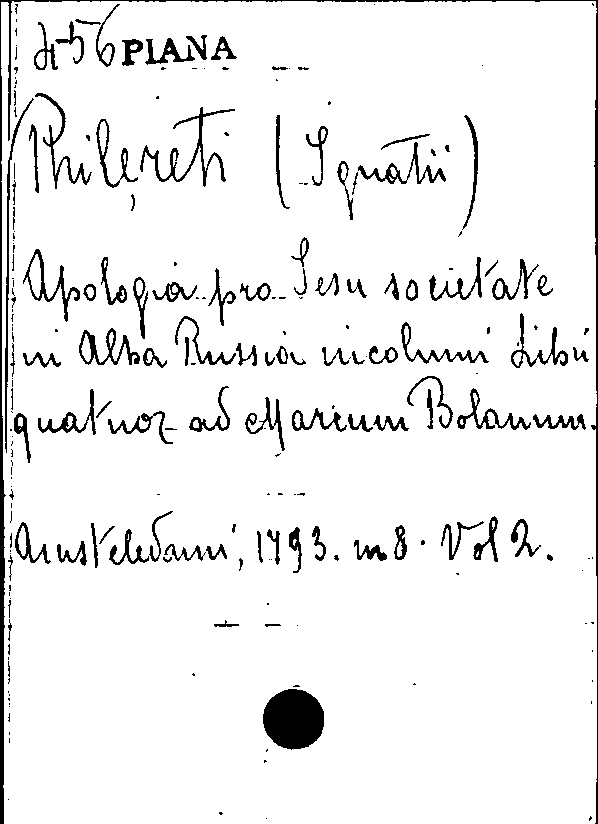 456 PIANA
Philẹreti (Ignatii)
Apologia pro Jesu societate
in Alba Russia incolumi Libri
quatuor ad Marcum Bolanum.
Amsteledami, 1793. in 8. Vol 2.